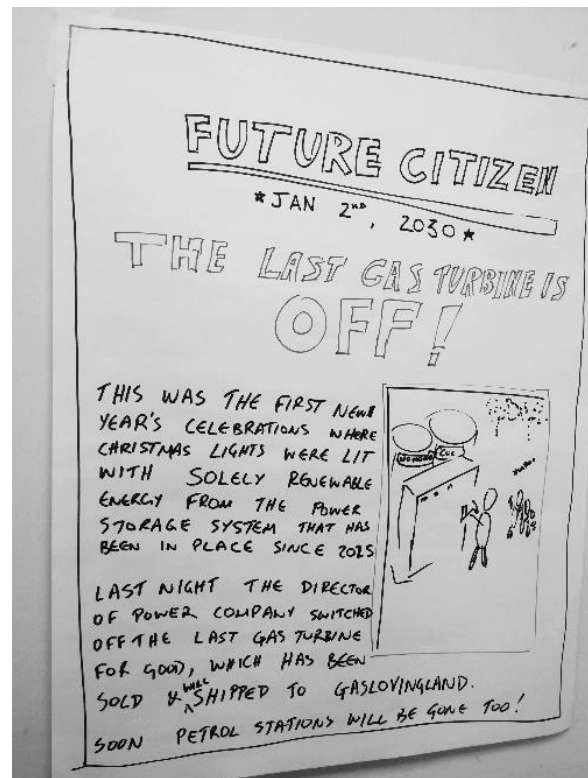 FUTURE CITIZEN
*JAN 2ND, 2030*
THE LAST GAS TURBINE IS
OFF!
THIS WAS THE FIRST NEW
YEAR'S CELEBRATIONS WHERE
CHRISTMAS LIGHTS WERE LIT
WITH SOLELY RENEWABLE
ENERGY FROM THE POWER
STORAGE SYSTEM THAT HAS
BEEN IN PLACE SINCE 2025
LAST NIGHT THE DIRECTOR
OF POWER COMPANY SWITCHED
OFF THE LAST GAS TURBINE
FOR GOOD, WHICH HAS BEEN
SOLD & WILL SHIPPED TO GASLOVINGLAND.
SOON PETROL STATIONS WILL BE GONE TOO!